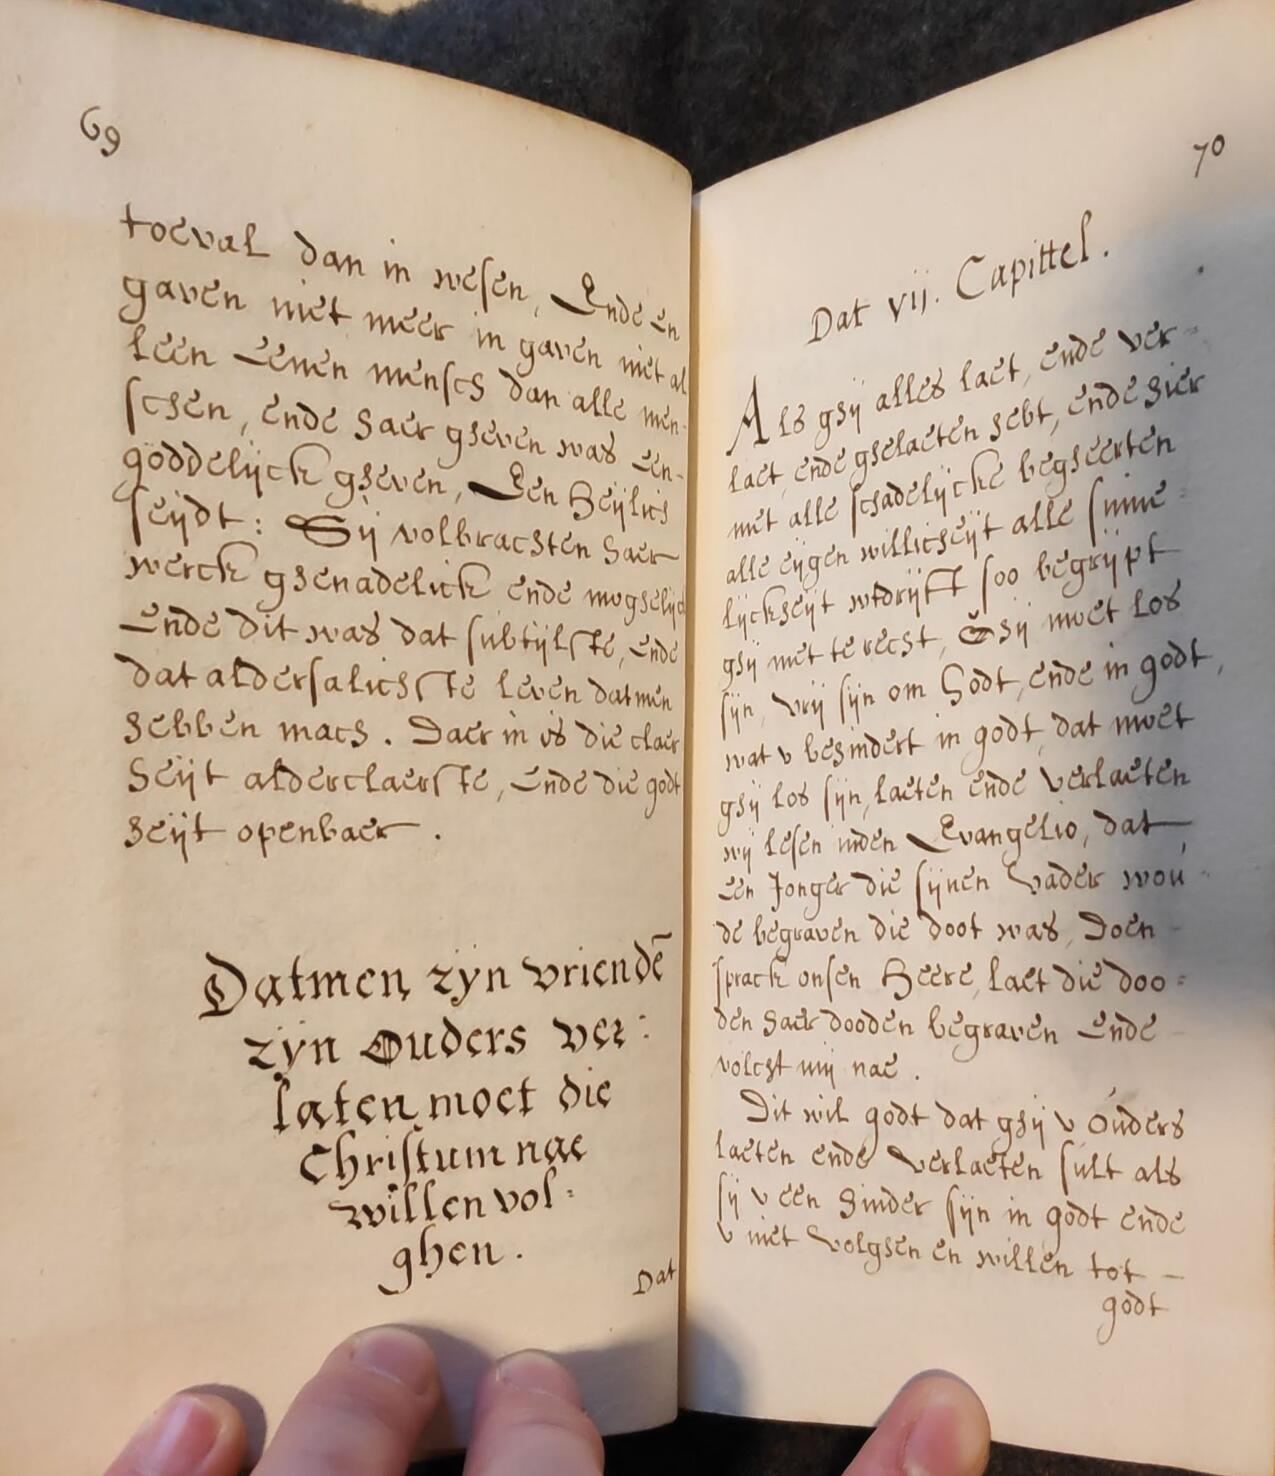 69
toeval dan in wesen, Ende en
gaven niet meer in gaven niet al
leen Eenen mensch dan alle men-
schen, ende haer gheven was Een-
goddelijck gheven, Een Heijlich
seijdt: Sij volbrachten haer
werck ghenadelick ende moghelijck
Ende dit was dat subtijlste, Ende
dat aldersalichste leven datmen
hebben mach. Daer in is die claer
heijt alderclaerste, Ende die godt
heijt openbaer.
Datmen zijn vriendē
zijn Ouders ver:
laten moet die
Christum nae
willen vol:
ghen.
Dat
70
Dat vij. Capittel.
Als ghij alles laet, ende ver-
laet, ende ghelaeten hebt, ende hier
met alle schadelijcke begheerten
alle eijgen willicheijt alle sinne=
lijckheijt wtdrijft soo begrijpt
ghij met te recht, Ghij moet los
sijn, vrij sijn om Godt, ende in godt,
wat v behindert in godt, dat moet
ghij los sijn, laeten ende verlaeten
wij lesen inden Evangelio, dat
een Jonger die sijnen Vader wou-
de begraven die doot was, Doen-
sprack onsen Heere, laet die doo=
den haer dooden begraven Ende
volcht mij nae.
Dit wil godt dat ghij v Ouders
laeten ende verlaeten sult als
sij v een hinder sijn in godt ende
v niet volghen en willen tot -
godt